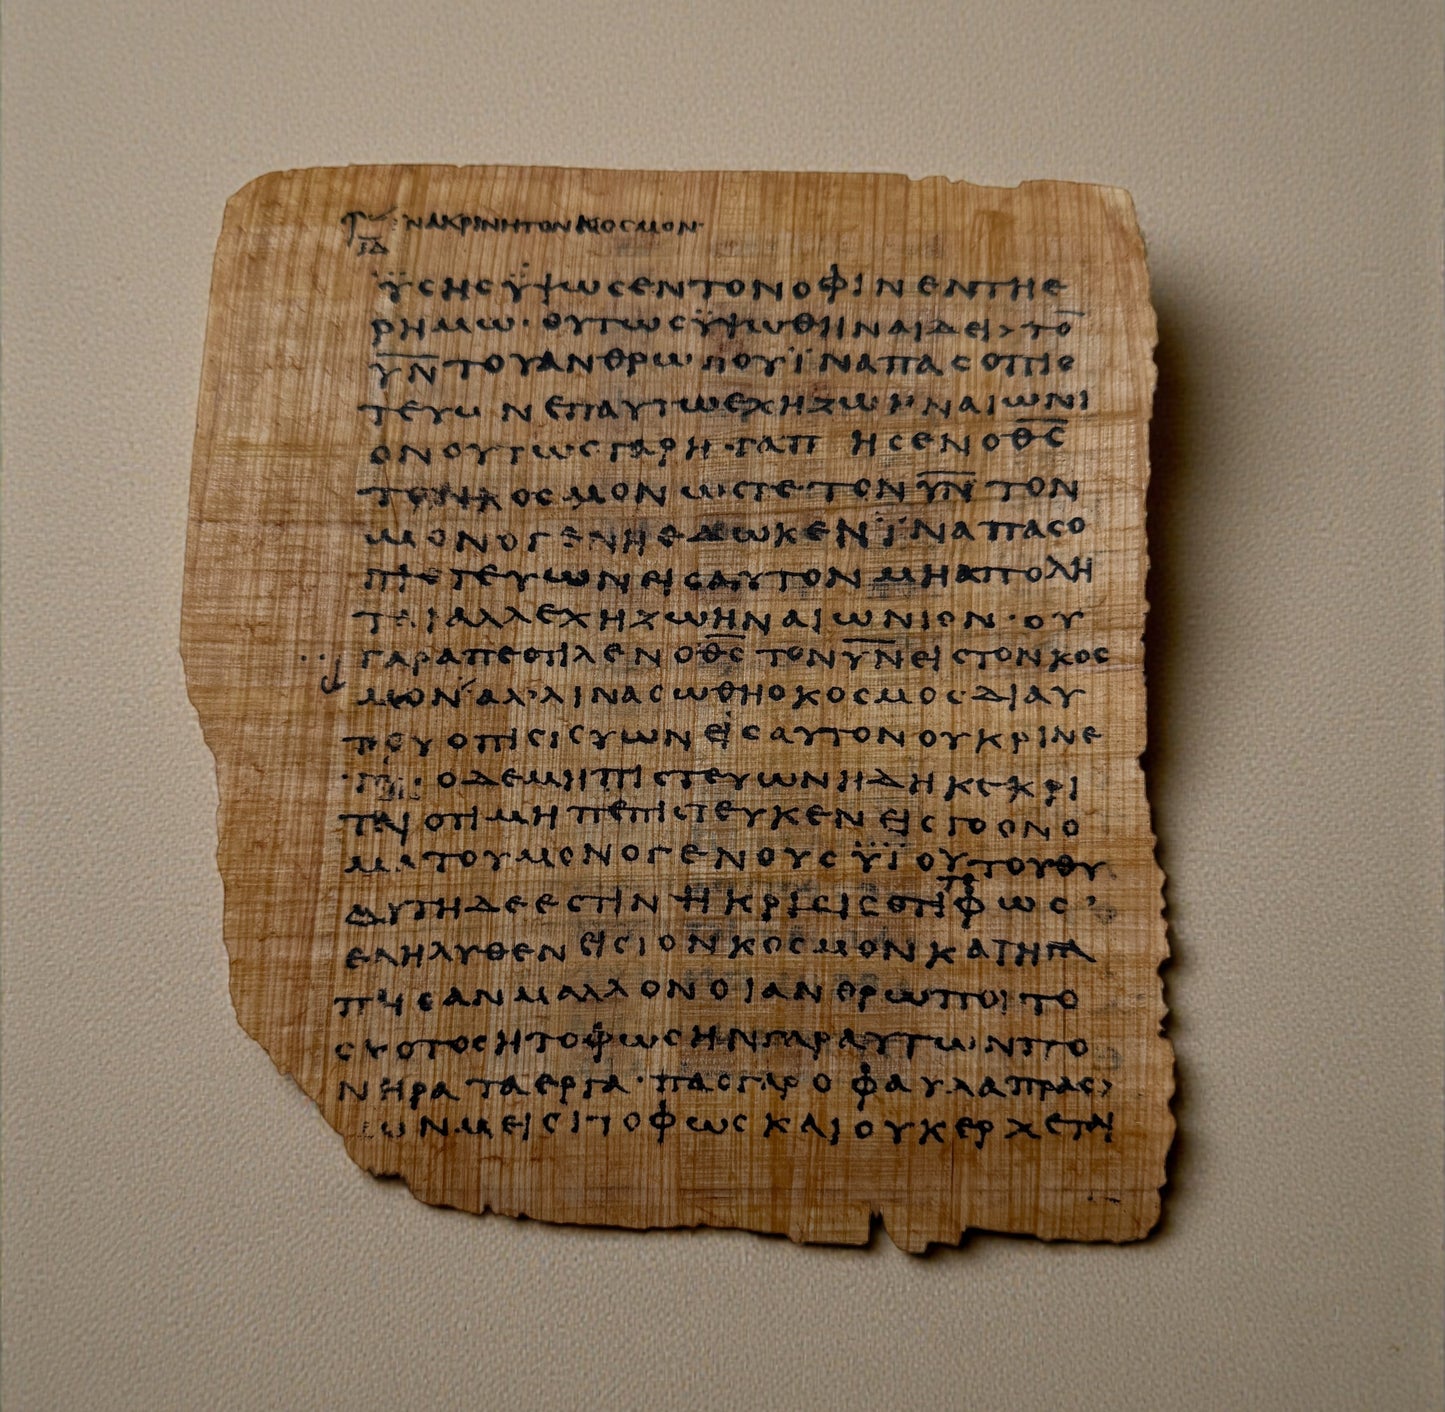 ΙΝΑΚΡΙΝΗΤΟΝΚΟCΜΟΝ·
ΙΔ
ΫCΗCΫΨωCΕΝΤΟΝΟΦΙΝΕΝΤΗΕ
ΡΗΜω·ΟΥΤωCΫΨωΘΗΝΑΙΔΕΙ>ΤΟ̅
Υ̅Ν̅ΤΟΥΑΝΘΡωΠΟΥΪΝΑΠΑCΟΠΙC
ΤΕΥωΝΕΠΑΥΤωΕΧΗΖωΗΝΑΙωΝΙ
ΟΝΟΥΤωCΓΑΡΗΓΑΠΗCΕΝΟΘ̅C̅
ΤΟΝΚΟCΜΟΝωCΤΕ·ΤΟΝΥ̅Ν̅ΤΟΝ
ΜΟΝΟΓΕΝΗΕΔωΚΕΝΪΝΑΠΑCΟ
ΠΙCΤΕΥωΝΕΙCΑΥΤΟΝΜΗΑΠΟΛΗ
ΤΑΙΑΛΛΕΧΗΖωΗΝΑΙωΝΙΟΝ·ΟΥ
ΓΑΡΑΠΕCΤΙΛΕΝΟΘ̅C̅ΤΟΝΥ̅Ν̅ΕΙCΤΟΝΚΟC
ΜΟΝ᾽ΑΛ·ΛΙΝΑCωΘΗΟΚΟCΜΟC·ΔΙΑΥ
ΤΟΥΟΠΙCΤΕΥωΝΕΙCΑΥΤΟΝΟΥΚΡΙΝΕ
ΟΔΕΜΗΠΙCΤΕΥωΝΗΔΗΚΕΚΡΙ
ΤΑΙΟΤΙΜΗΠΕΠΙCΤΕΥΚΕΝΕΙCΤΟΟΝΟ
ΜΑΤΟΥΜΟΝΟΓΕΝΟΥCΫΪΟΥΤΟΥΘΥ
ΑΥΤΗΔΕΕCΤΙΝΗΚΡΙCΙCΟΤΙΤΟΦωC·
ΕΛΗΛΥΘΕΝΕΙCΤΟΝΚΟCΜΟΝΚΑΙΗΓΑ
ΠΗCΑΝΜΑΛΛΟΝΟΙΑΝΘΡωΠΟΙΤΟ
CΚΟΤΟCΗΤΟΦωCΗΝΓΑΡΑΥΤωΝΠΟ
ΝΗΡΑΤΑΕΡΓΑ·ΠΑCΓΑΡΟΦΑΥΛΑΠΡΑC>
CωΝΜΕΙCΙΤΟΦωCΚΑΙΟΥΚΕΡΧΕΤΑΙ